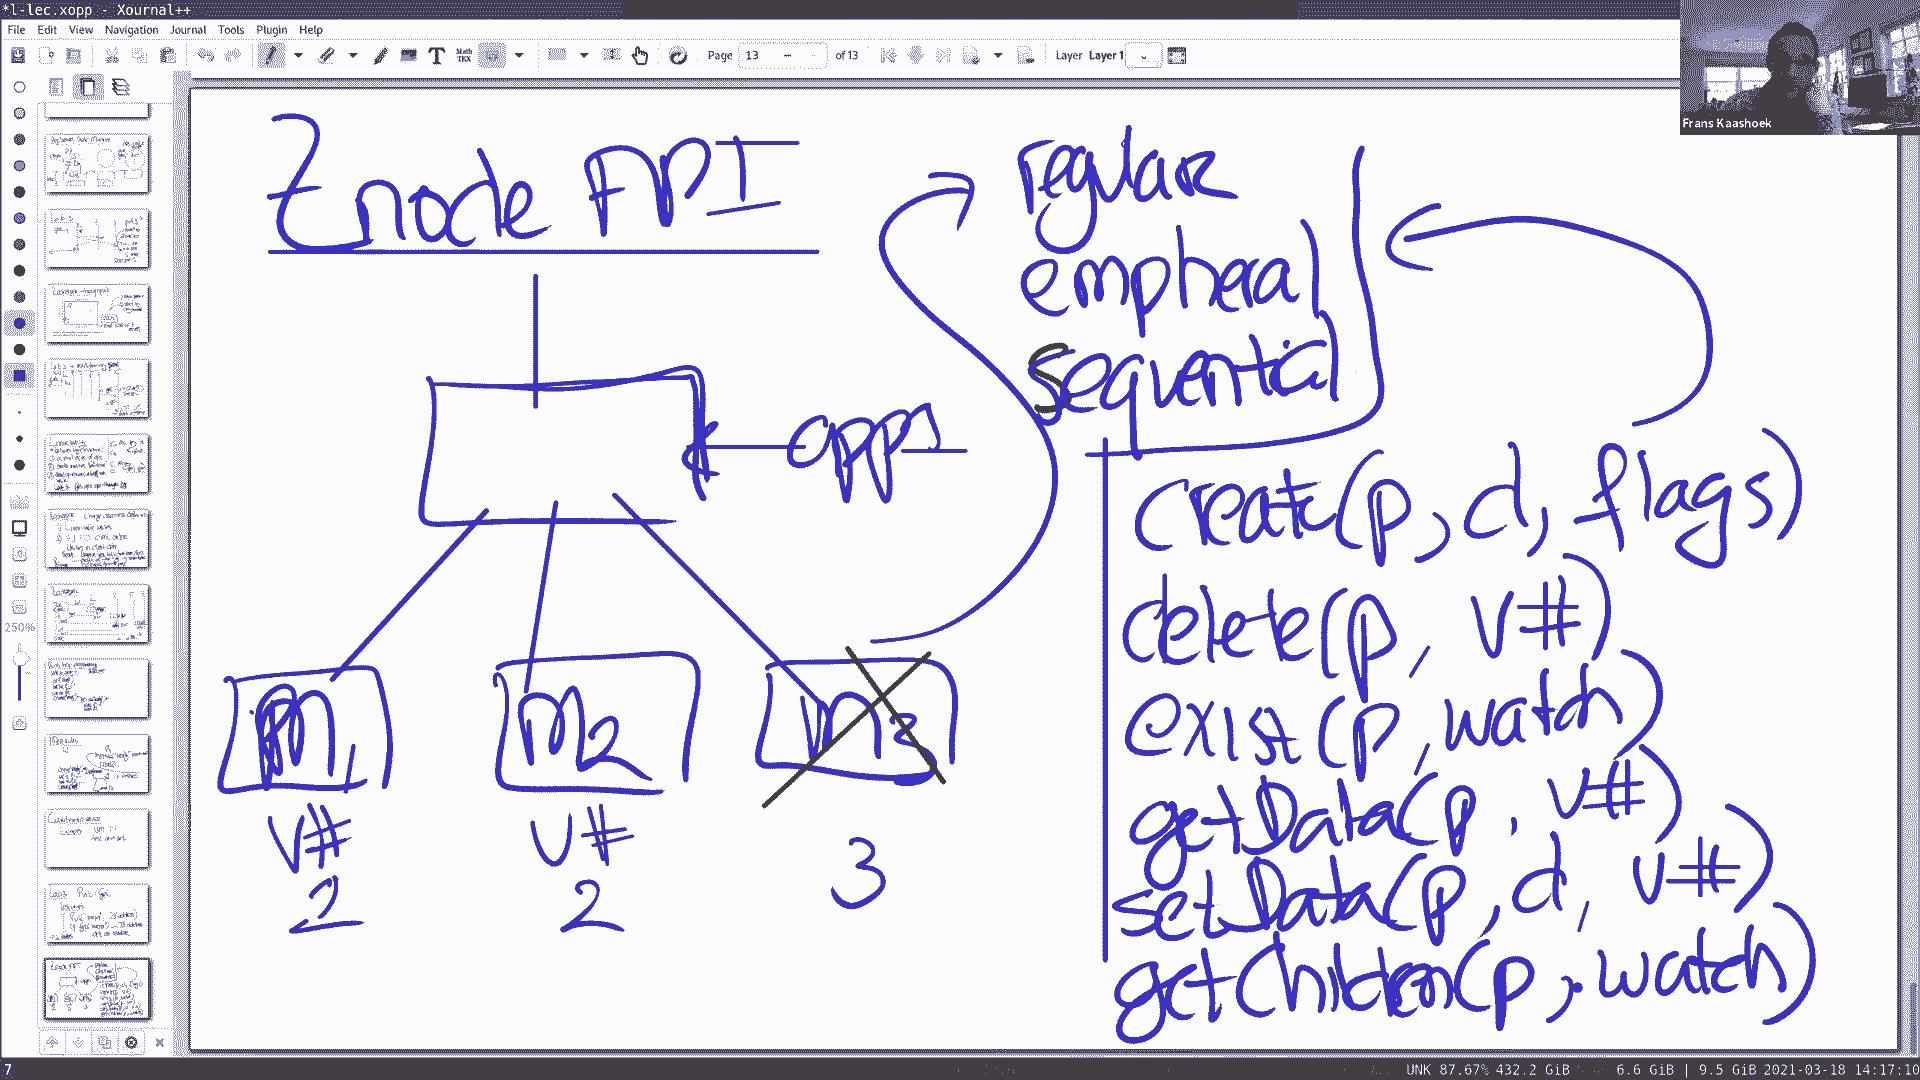 *l-lec.xopp - Xournal++
File Edit View Navigation Journal Tools Plugin Help
Page 13 of 13 Layer Layer 1
Frans Kaashoek
250%
Znode API
regular
empheral
sequential
apps
create(p, d, flags)
delete(p, v#)
exist(p, watch)
getData(p, v#)
setData(p, d, v#)
getChildren(p, watch)
m1 m2 m3
v# v# 3
2 2
7 UNK 87.67% 432.2 GiB 6.6 GiB | 9.5 GiB 2021-03-18 14:17:10